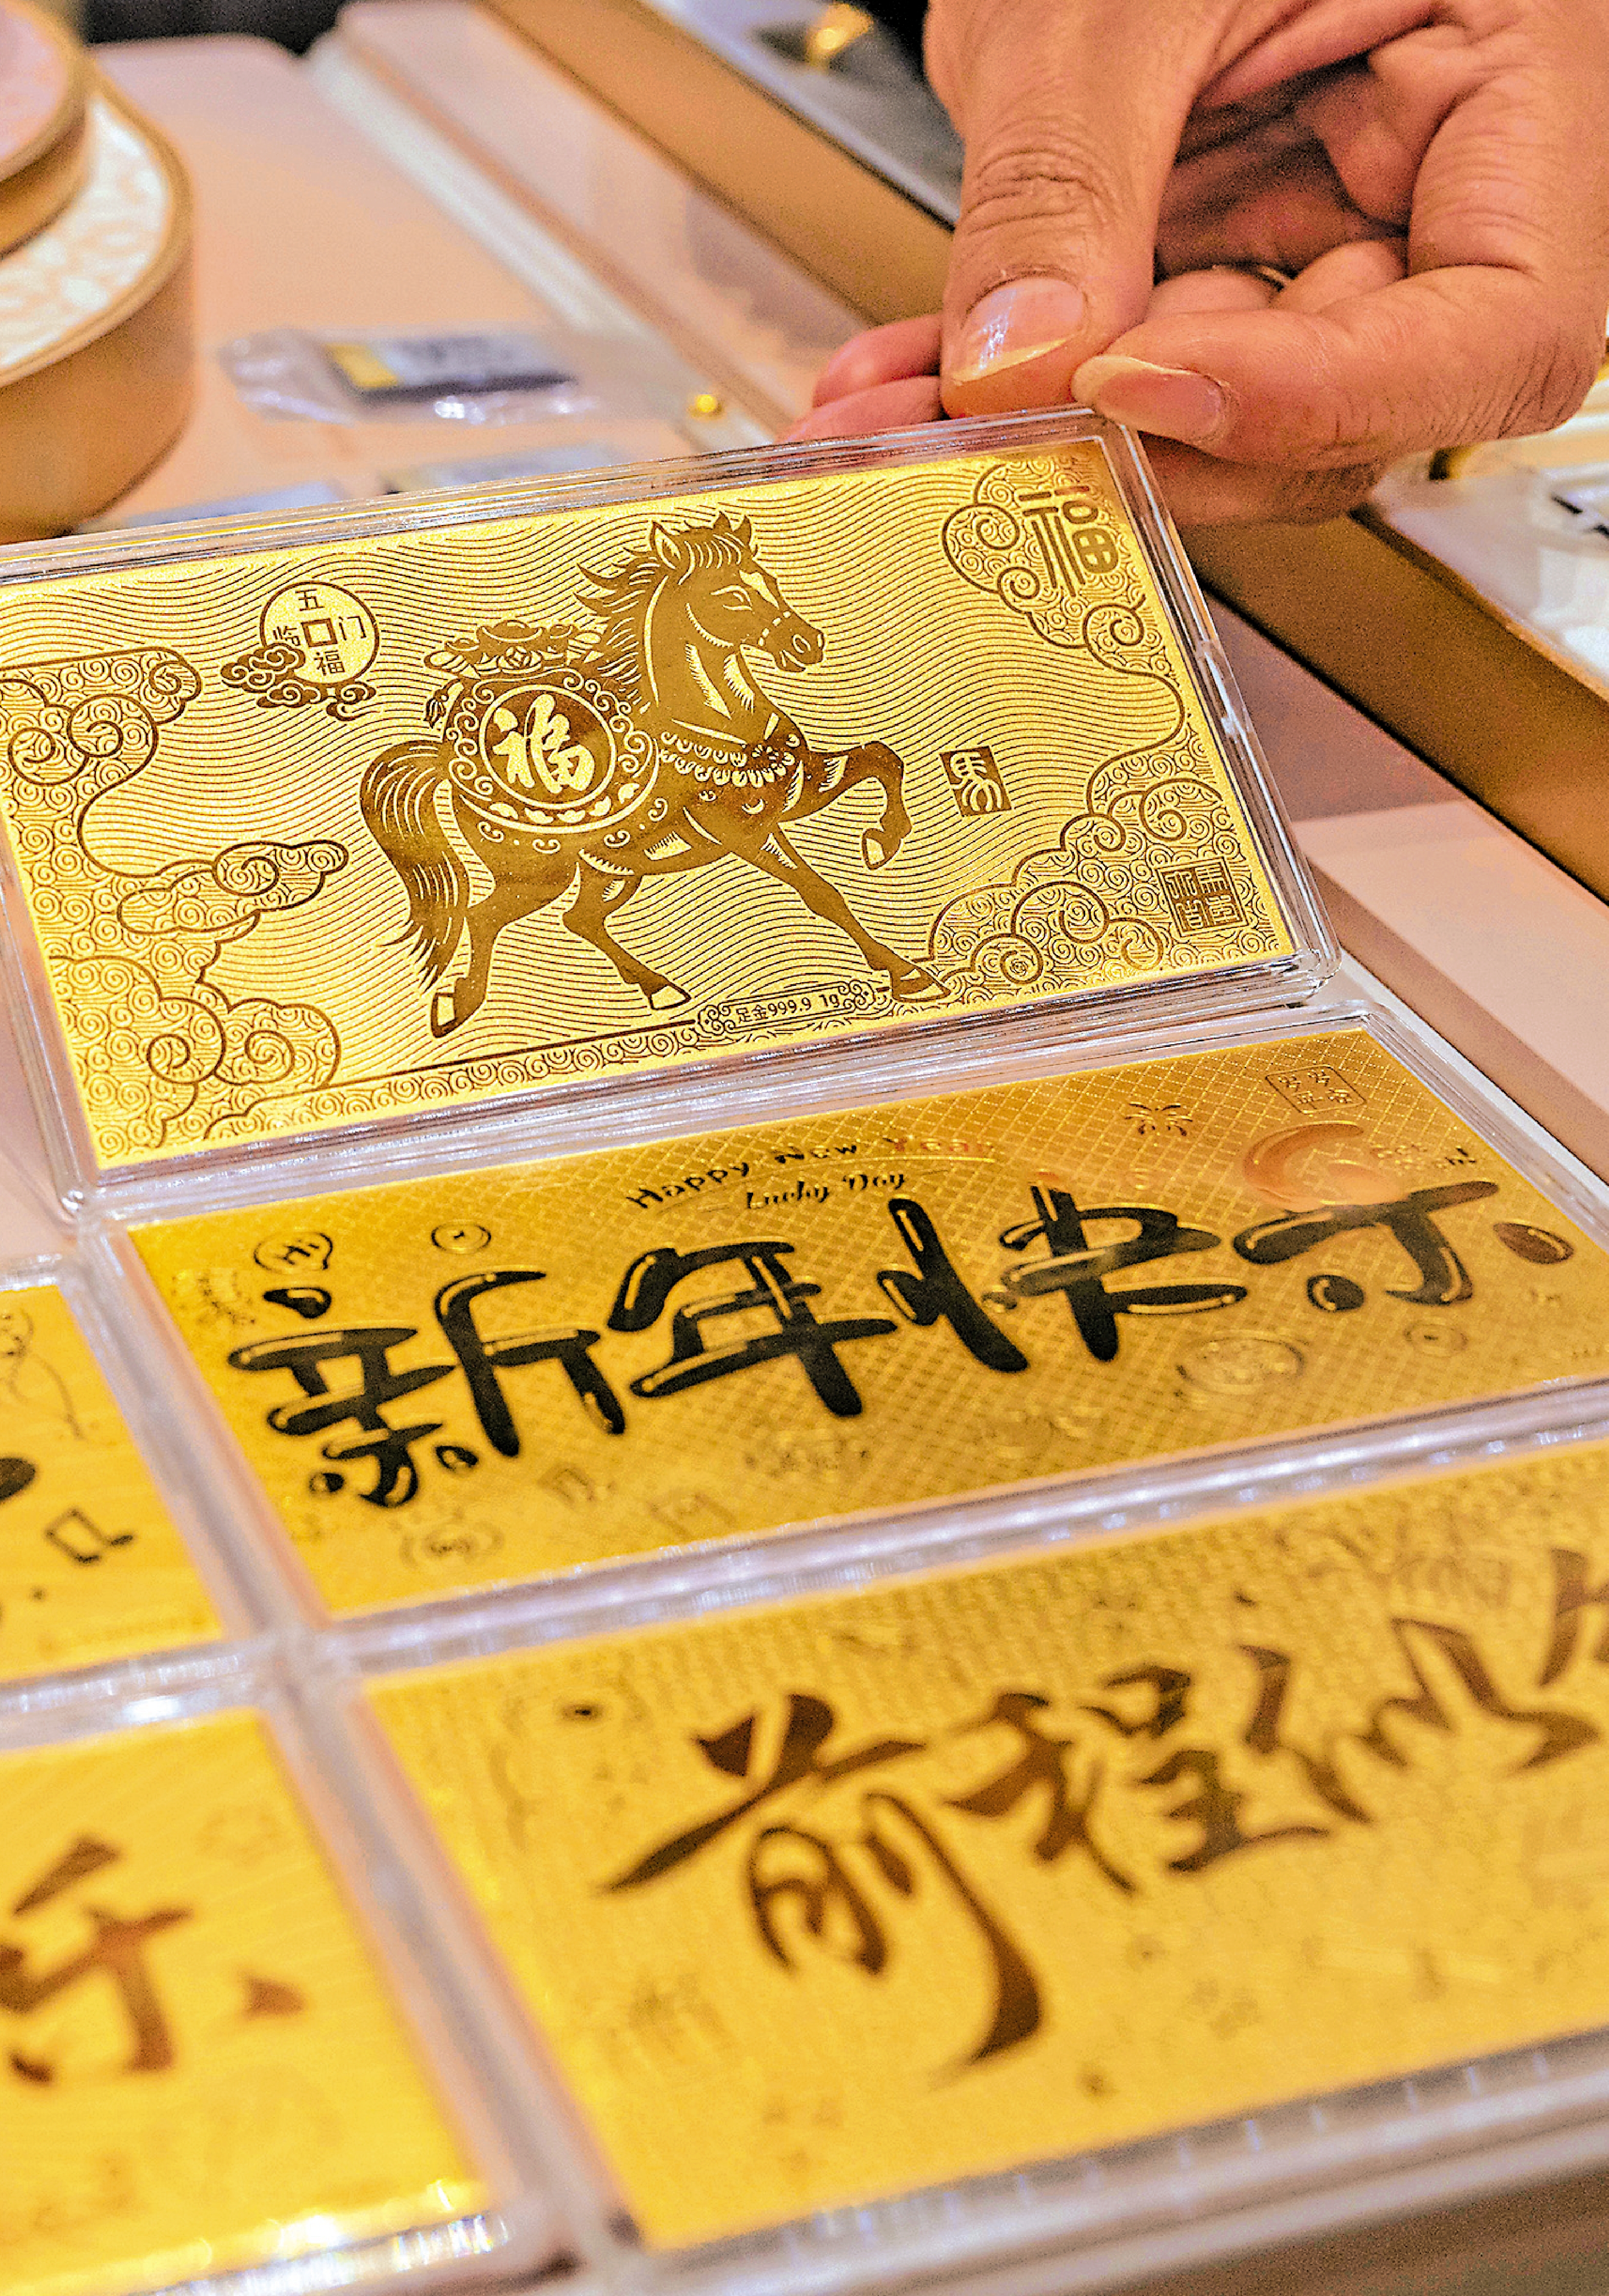 五
临门
福
福
福
马
足金999.9 1g
Happy New Year
Lucky Day
Hi
新年快乐
前程似
乐